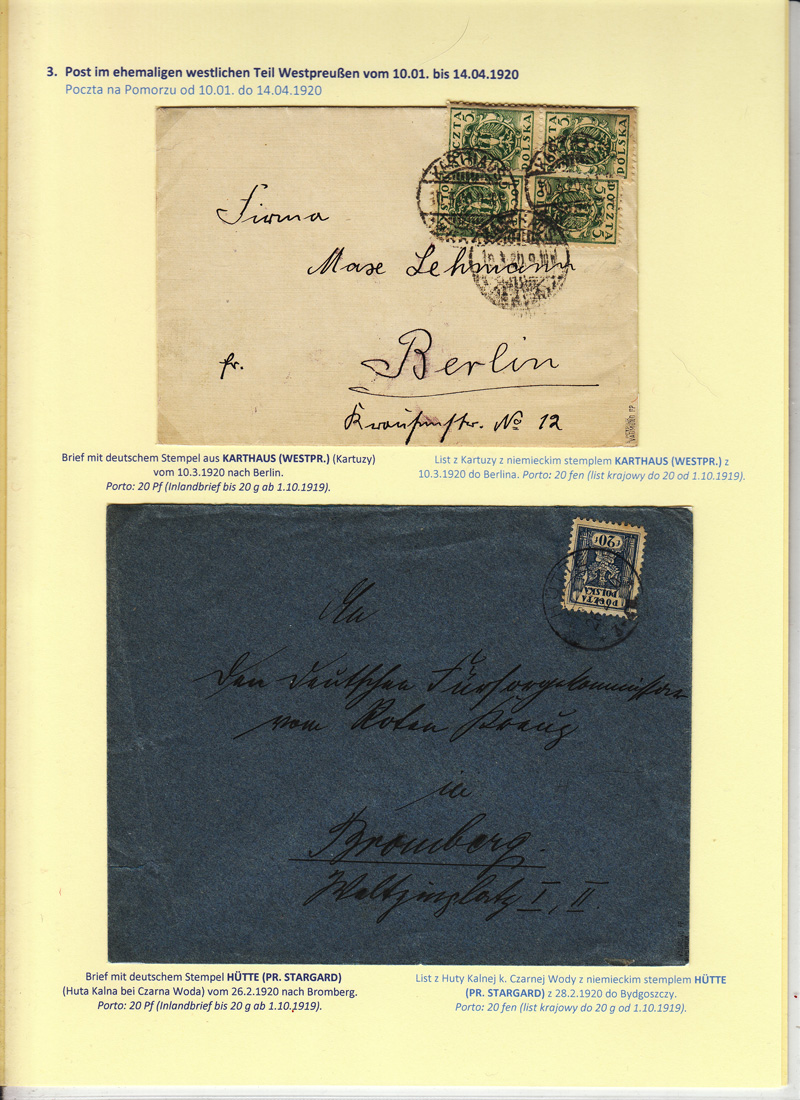 3. Post im ehemaligen westlichen Teil Westpreußen vom 10.01. bis 14.04.1920
Poczta na Pomorzu od 10.01. do 14.04.1920
POCZTA 5 POLSKA
POCZTA 5 POLSKA
POCZTA 5
KARTHAUS
Firma
Max Lehmann
fr.
Berlin
Krausenstr. No 12
Brief mit deutschem Stempel aus KARTHAUS (WESTPR.) (Kartuzy)
vom 10.3.1920 nach Berlin.
Porto: 20 Pf (Inlandbrief bis 20 g ab 1.10.1919).
List z Kartuzy z niemieckim stemplem KARTHAUS (WESTPR.) z
10.3.1920 do Berlina. Porto: 20 fen (list krajowy do 20 od 1.10.1919).
20 F
POCZTA
POLSKA
An
den deutschen Fürsorgekommissar
vom Roten Kreuz
in
Bromberg.
Weltzinplatz I, II.
Brief mit deutschem Stempel HÜTTE (PR. STARGARD)
(Huta Kalna bei Czarna Woda) vom 26.2.1920 nach Bromberg.
Porto: 20 Pf (Inlandbrief bis 20 g ab 1.10.1919).
List z Huty Kalnej k. Czarnej Wody z niemieckim stemplem HÜTTE
(PR. STARGARD) z 28.2.1920 do Bydgoszczy.
Porto: 20 fen (list krajowy do 20 g od 1.10.1919).